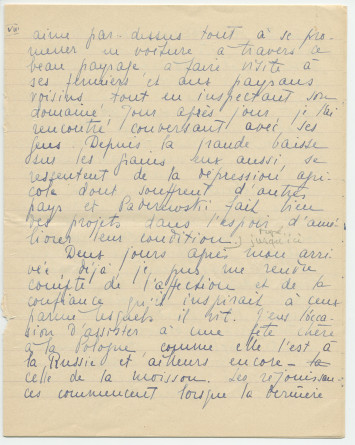 VIII
aime par-dessus tout à se pro-
mener en voiture à travers ce
beau paysage à faire visite à
ses fermiers et aux paysans
voisins tout en inspectant son
domaine. Jour après jour je l'ai
rencontré conversant avec ses
gens. Depuis la grande baisse
sur les grains eux aussi se
ressentent de la dépression agri-
cole dont souffrent d'autres
pays et Paderewski fait bien
des projets dans l'espoir d'amé-
liorer leur condition
Deux jours après mon arri-
vée déjà je pus me rendre
compte de l'affection et de la
confiance qu'il inspirait à ceux
parmi lesquels il vit. J'eus l'occa-
sion d'assister à une fête chère
à la Pologne comme elle l'est à
la Russie et ailleurs encore – la
celle de la moisson. Les réjouissan-
ces commencent lorsque la dernière